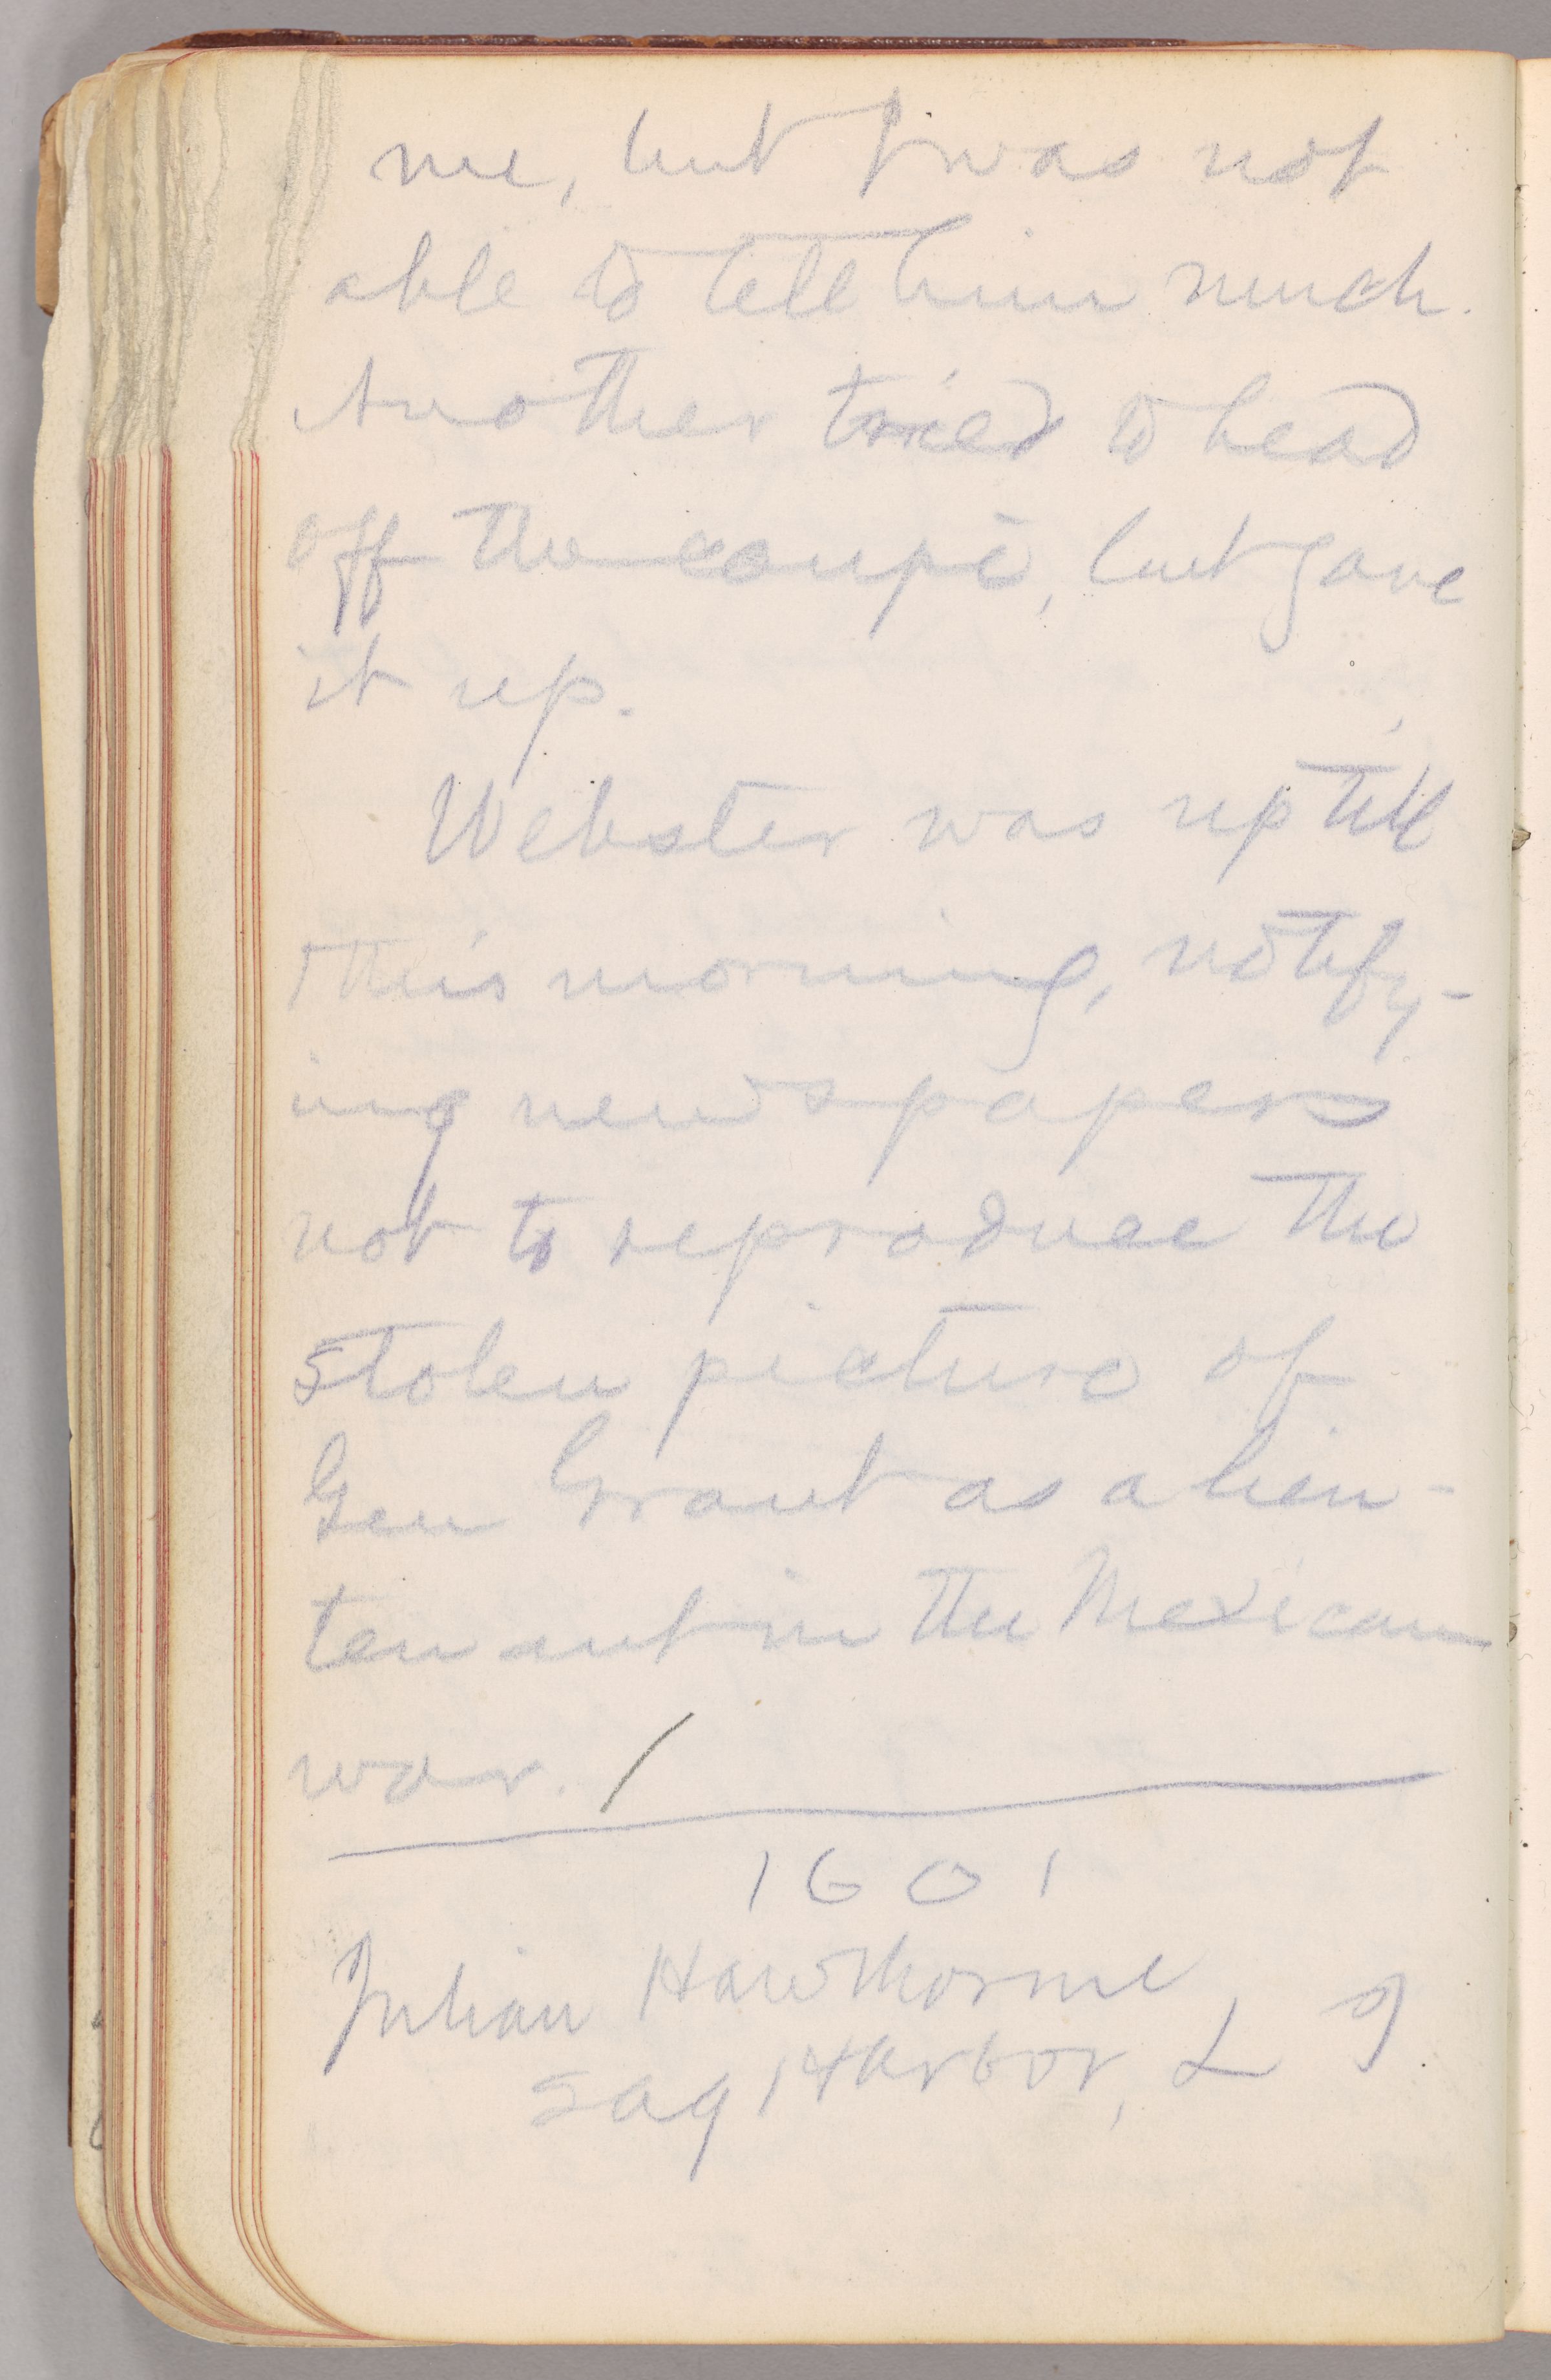 me, but I was not
able to tell him much.
Another tried to head
off the coupé, but gave
it up.
Webster was up till
this morning, notify-
ing newspapers
not to reproduce the
stolen picture of
Gen Grant as a lieu-
tenant in the Mexican
war. /
1601
Julian Hawthorne
Sag Harbor, L I.